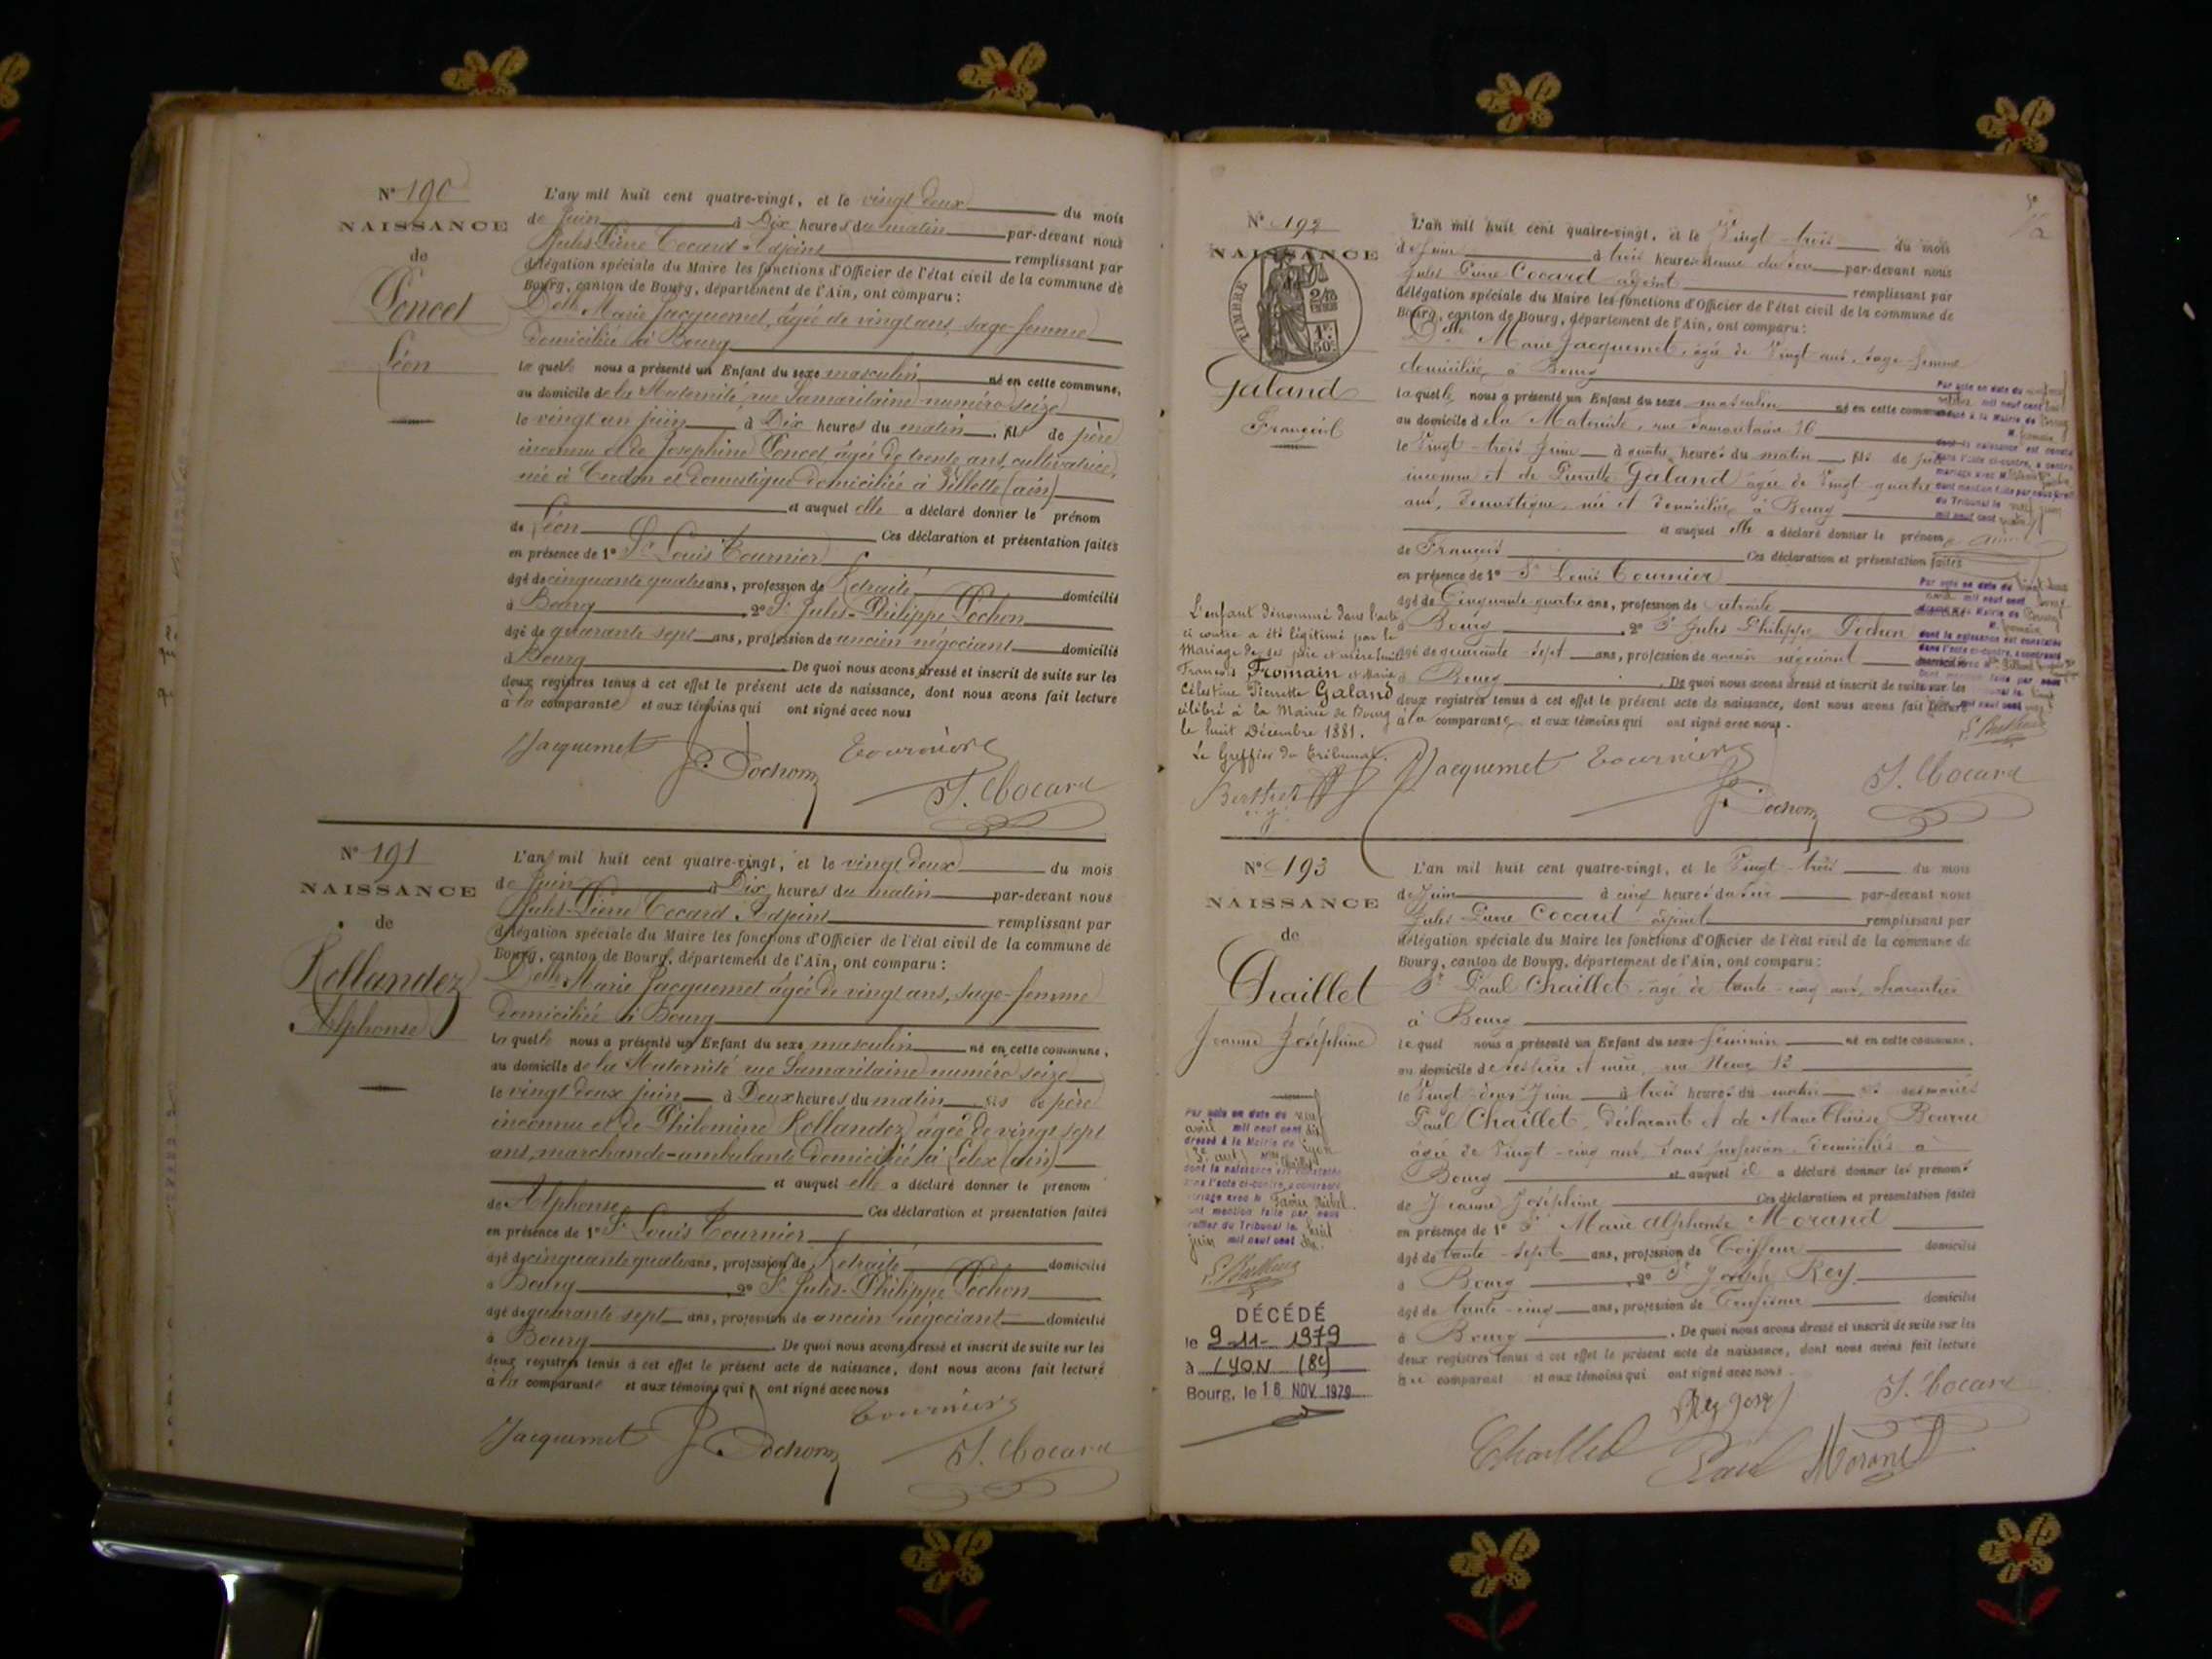 N° 190
NAISSANCE
de
Poncet
Léon
L'an mil huit cent quatre-vingt, et le vingt deux du mois
de Juin à Dix heures du matin par-devant nous
Jules-Pierre Cocard Adjoint remplissant par
délégation spéciale du Maire les fonctions d'Officier de l'état civil de la commune de
Bourg, canton de Bourg, département de l'Ain, ont comparu :
Delle Marie Jacquemet, âgée de vingt ans, sage-femme
domiciliée à Bourg
laquelle nous a présenté un Enfant du sexe masculin né en cette commune,
au domicile de la Maternité rue Samaritaine numéro seize
le vingt un juin à Dix heures du matin, fils de père
inconnu et de Josephine Poncet, âgée de trente ans, cultivatrice,
née à Cerdon et domestique domiciliée à Villette (ain)
et auquel elle a déclaré donner le prénom
de Léon Ces déclaration et présentation faites
en présence de 1° Sr Louis Tournier
âgé de cinquante quatre ans, profession de Retraité domicilié
à Bourg, 2° Sr Jules-Philippe Pochon
âgé de quarante sept ans, profession de ancien négociant domicilié
à Bourg De quoi nous avons dressé et inscrit de suite sur les
deux registres tenus à cet effet le présent acte de naissance, dont nous avons fait lecture
à la comparante et aux témoins qui ont signé avec nous
Jacquemet P. Pochon Tournier
J. Cocard
N° 191
NAISSANCE
de
Rollandez
Alphonse
L'an mil huit cent quatre-vingt, et le vingt deux du mois
de Juin à Dix heures du matin par-devant nous
Jules-Pierre Cocard Adjoint remplissant par
délégation spéciale du Maire les fonctions d'Officier de l'état civil de la commune de
Bourg, canton de Bourg, département de l'Ain, ont comparu :
Delle Marie Jacquemet âgée de vingt ans, sage-femme
domiciliée à Bourg
laquelle nous a présenté un Enfant du sexe masculin né en cette commune,
au domicile de la Maternité rue Samaritaine numéro seize
le vingt deux juin à Deux heures du matin fils de père
inconnu et de Philomène Rollandez âgée de vingt sept
ans, marchande-ambulante domiciliée à Lélex (ain)
et auquel elle a déclaré donner le prénom
de Alphonse Ces déclaration et présentation faites
en présence de 1° Sr Louis Tournier
âgé de cinquante quatre ans, profession de Retraité domicilié
à Bourg, 2° Sr Jules-Philippe Pochon
âgé de quarante sept ans, profession de ancien négociant domicilié
à Bourg De quoi nous avons dressé et inscrit de suite sur les
deux registres tenus à cet effet le présent acte de naissance, dont nous avons fait lecture
à la comparante et aux témoins qui ont signé avec nous
Jacquemet P. Pochon Tournier
J. Cocard
N° 192
NAISSANCE
de
TIMBRE
Galand
François
L'an mil huit cent quatre-vingt, et le Vingt-trois du mois
de Juin à trois heures demie du soir par-devant nous
Jules Pierre Cocard adjoint remplissant par
délégation spéciale du Maire les fonctions d'Officier de l'état civil de la commune de
Bourg, canton de Bourg, département de l'Ain, ont comparu :
Delle Marie Jacquemet, âgée de Vingt ans, sage femme
domiciliée à Bourg
laquelle nous a présenté un Enfant du sexe masculin né en cette commune
au domicile de la Maternité, rue Samaritaine 16
le Vingt-trois Juin à quatre heures du matin, fils de père
inconnu et de Pierrette Galand âgée de Vingt quatre
ans, domestique, née et domiciliée à Bourg
et auquel elle a déclaré donner le prénom
de François Ces déclaration et présentation faites
en présence de 1° Sr Louis Tournier
âgé de Cinquante quatre ans, profession de retraité
à Bourg, 2° Sr Jules Philippe Pochon
âgé de quarante-sept ans, profession de ancien négociant
à Bourg. De quoi nous avons dressé et inscrit de suite sur les
deux registres tenus à cet effet le présent acte de naissance, dont nous avons fait lecture
à la comparante et aux témoins qui ont signé avec nous.
Jacquemet Tournier
P. Pochon J. Cocard
L'enfant dénommé dans l'acte
ci contre a été légitimé par le
Mariage de ses père et mère
François Fromain et Marie
Célestine Pierrette Galand
célébré à la Mairie de Bourg
le huit Décembre 1881.
Le Greffier du Tribunal.
Par acte en date du
mil neuf cent
dressé à la Mairie de Bourg
dont la naissance est constatée
dans l'acte ci-contre, a contracté
mariage avec
dont mention faite par nous
du Tribunal le
mil neuf cent
Par acte en date du
mil neuf cent
Mairie de
dont la naissance est constatée
dans l'acte ci-contre, a contracté
N° 193
NAISSANCE
de
Chaillet
Jeanne Joséphine
L'an mil huit cent quatre-vingt, et le Vingt-trois du mois
de Juin à cinq heures du soir par-devant nous
Jules Pierre Cocard adjoint remplissant par
délégation spéciale du Maire les fonctions d'Officier de l'état civil de la commune de
Bourg, canton de Bourg, département de l'Ain, ont comparu :
Sr Paul Chaillet, âgé de trente-cinq ans, charcutier
à Bourg
lequel nous a présenté un Enfant du sexe féminin né en cette commune,
au domicile de ses père et mère, rue Neuve 12
le Vingt-deux Juin à trois heures du matin, des mariés
Paul Chaillet, déclarant et de Marie Thérèse
âgée de Vingt-cinq ans, sans profession, domiciliés à
Bourg et auquel il a déclaré donner les prénoms
de Jeanne Joséphine Ces déclaration et présentation faites
en présence de 1° Sr Marie Alphonse Morand
âgé de trente-sept ans, profession de Coiffeur domicilié
à Bourg, 2° Sr Joseph Rey
âgé de trente-cinq ans, profession de domicilié
à Bourg. De quoi nous avons dressé et inscrit de suite sur les
deux registres tenus à cet effet le présent acte de naissance, dont nous avons fait lecture
au comparant et aux témoins qui ont signé avec nous.
J. Cocard
Chaillet Paul Morand
Par acte en date du
avril mil neuf cent dix
dressé à la Mairie de Lyon
dont la naissance est constatée
dans l'acte ci-contre, a contracté
mariage avec M.
dont mention faite par nous
greffier du Tribunal le huit
juin mil neuf cent dix.
DÉCÉDÉ
le 9-11-1979
à LYON (8e)
Bourg, le 16 NOV. 1979